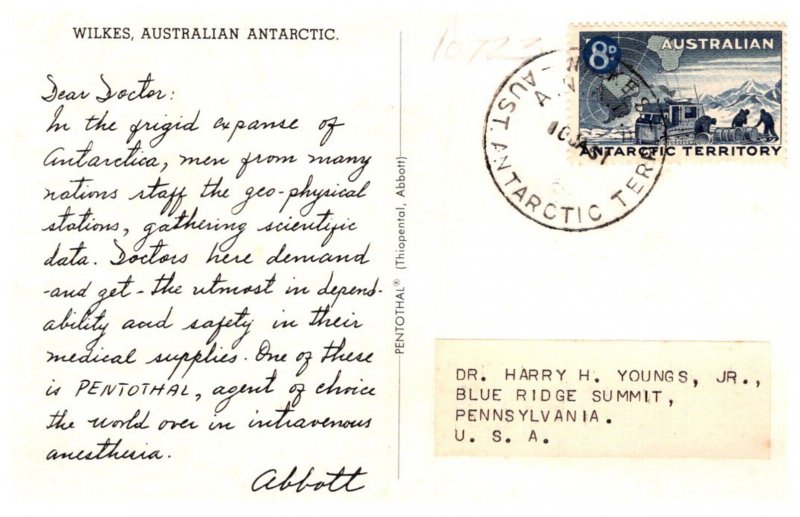 WILKES, AUSTRALIAN ANTARCTIC.
Dear Doctor:
In the frigid expanse of
Antarctica, men from many
nations staff the geo-physical
stations, gathering scientific
data. Doctors here demand
-and get- the utmost in depend-
ability and safety in their
medical supplies. One of these
is PENTOTHAL, agent of choice
the world over in intravenous
anesthesia.
Abbott
PENTOTHAL® (Thiopental, Abbott)
8D
AUSTRALIAN
ANTARCTIC TERRITORY
AUST. ANTARCTIC TERR
DR. HARRY H. YOUNGS, JR.,
BLUE RIDGE SUMMIT,
PENNSYLVANIA.
U. S. A.